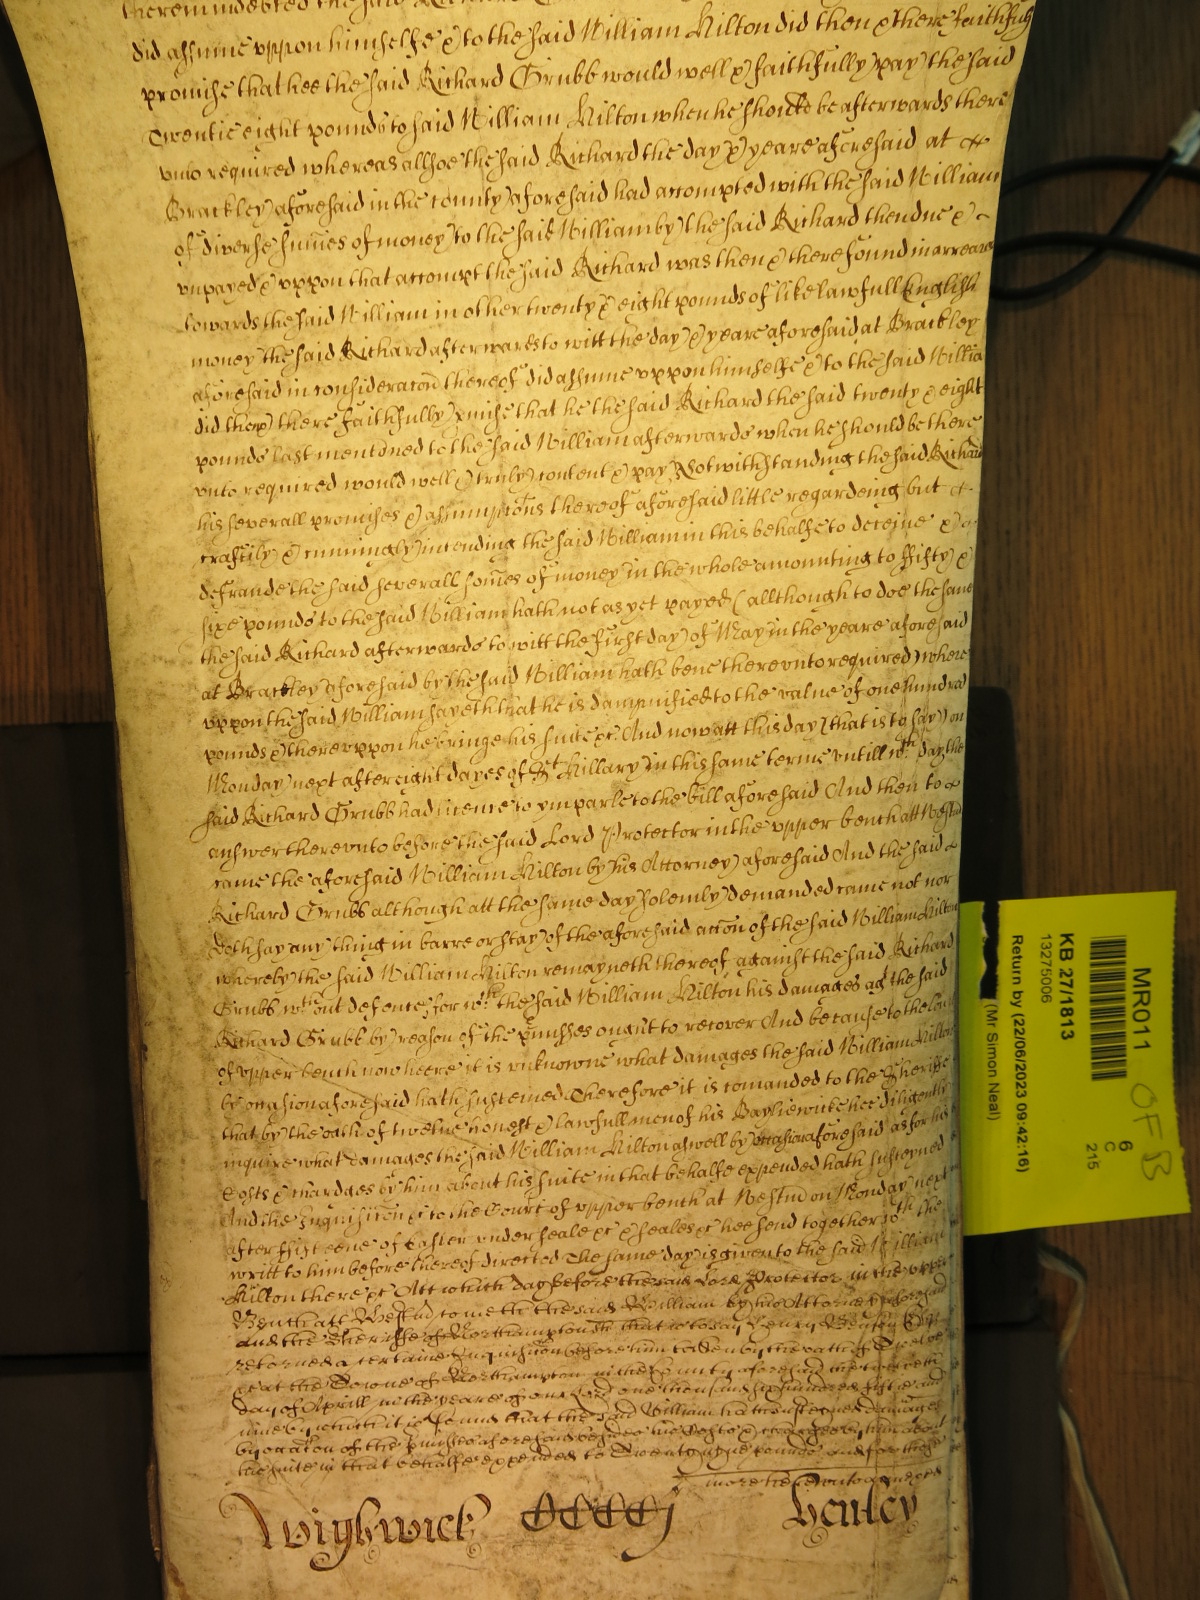 therein indebted the said Richard
did assume uppon himselfe & to the said William Hilton did then & there faithfully
promise that hee the said Richard Grubb would well & faithfully pay the said
Twentie eight pounds to said William Hilton when he should be afterwards there
unto required whereas allsoe the said Richard the day & yeare aforesaid at
Brackley aforesaid in the County aforesaid had accompted with the said William
of diverse sum̄es of money to the said William by the said Richard then due &
unpayed & uppon that accompt the said Richard was then & there found in arreares
towards the said William in other twenty & eight pounds of like lawfull English
money the said Richard afterwards to witt the day & yeare aforesaid at Brackley
aforesaid in consideracōn thereof did assume uppon himselfe & to the said Willia
did then & there faithfully pmise that he the said Richard the said twenty & eight
pounds last mentoned to the said William afterwards when he should be there
unto required would well & truly content & pay Notwithstanding the said Richard
his severall promises & assumpcōns thereof aforesaid little regardeing but
craftily & cunningly intending the said William in this behalfe to deceive &
defraude the said severall som̄es of money in the whole amounting to ffifty &
sixe pounds to the said William hath not as yet payed (allthough to doe the same
the said Richard afterwards to witt the first day of May in the yeare aforesaid
at Brackley aforesaid by the said William hath bene thereunto required) where
uppon the said William sayeth that he is damnified to the value of one hundred
pounds & thereuppon he bringe his suite &c. And now att this day (that is to say) on
Monday next after eight dayes of St Hillary in this same terme untill wch day the
said Richard Grubb had licence to ymparle to the bill aforesaid And then to
answer thereunto before the said Lord Protector in the upper bench att Westm̄
came the aforesaid William Hilton by his Attorney aforesaid And the said
Richard Grubb although att the same day solemly demanded came not nor
doth say any thing in barre or stay of the aforesaid accōn of the said William Hilton
whereby the said William Hilton remayneth thereof against the said Richard
Grubb wthout defence, for wch the said William Hilton his damages agt the said
Richard Grubb by reason of the pmisses ought to recover And because to the Court
of upper bench now heere it is unknowne what damages the said William Hilton
by occasion aforesaid hath susteined Therefore it is comanded to the Sheriffe
that by the oath of twelve honest & lawfull men of his Bayliewicke hee diligently
inquire what damages the said William Hilton aswell by occasion aforesaid as for his
Costs & chardges by him about his suite in that behalfe expended hath susteyned
And the Inquisicōn &c to the Court of upper bench at Westm̄ on Monday next
after fifteene of Easter under seale &c & seales &c hee send together wth the
writt to him before thereof directed The same day is given to the said William
Hilton there &c Att which day before the said Lord Protector in the upper
Bench att Westm̄ cometh the said William by his Attorney aforesaid
and the Sheriffe of Northamptonsh that is to say Henry
retorned a certaine Inquisicōn before him taken by the oath of Twelve
&c at the Towne of Northampton in the County aforesaid the
day of Aprill in the yeare of our Lord one thousand six hundred fiftie and
nine by which it is found that the said William hath susteyned damages
by occacōn of the pmisses aforesaid besides his Costs & chardges by him about
his suite in that behalfe expended to pounds and for those
more thereunto
Wightwick CCCCj Henley
MR011
OF B
6
C
215
KB 27/1813
13275006
(Mr Simon Neal)
Return by (22/06/2023 09:42:16)